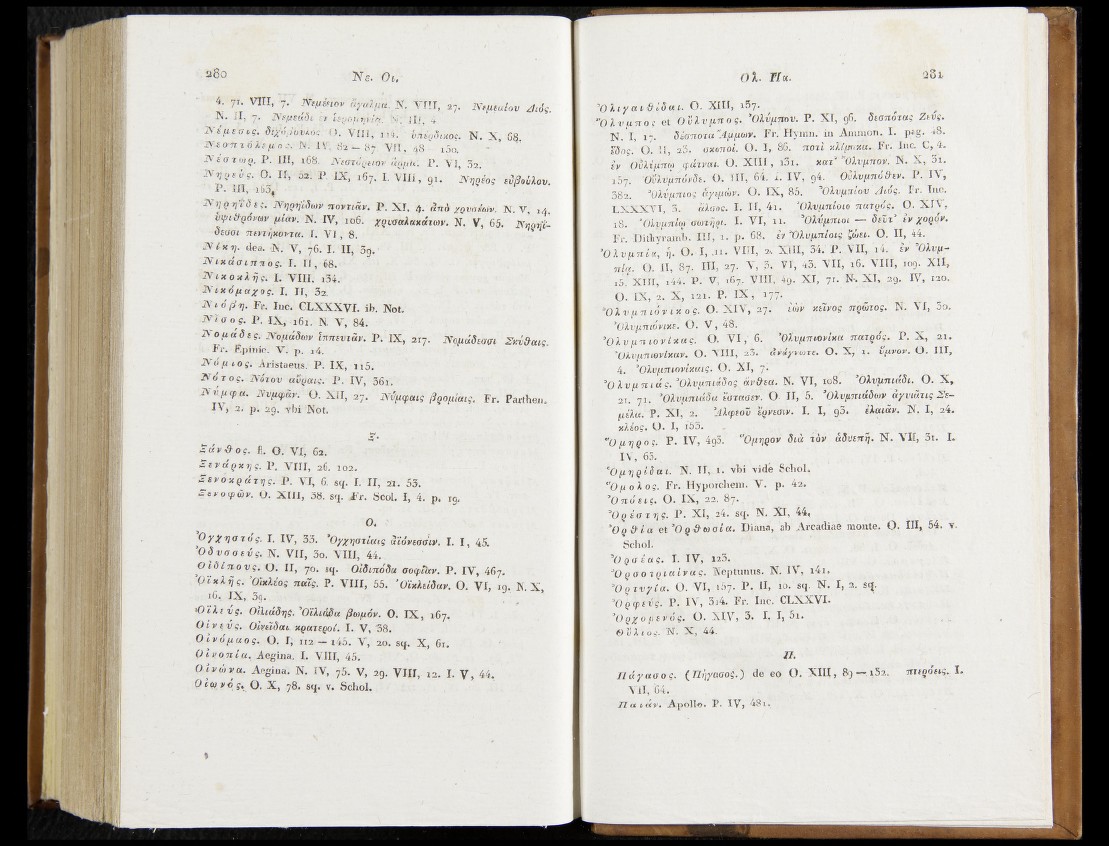 280 Νε. Οι.
4. 71. VIII, 7. Νεμέαιον ἄγαλμα. N. VIII, 27. Νεμεαίου Διός.
N. II, 7. Νεμεάδι N. III, 4.
Νέμεσις. διχόβουλος O. VIII, 114. ὑπέρδικος. N. X, 68.
Νεοπτόλεμος. N. IV, 82 — 87 VII, 48 — 150.
Νέστωρ. P. III, 168. Νεστόρειον ἅρμα. P. VI, 32.
Νηρεύς. O. II, 52. P. IX, 167. I. VIII, 91. Νηρέος εὐβούλου.
P. III, 163,
Νηρηΐδες. Νηρηΐδων ποντιᾶν. P. XI, 4. ἀπὸ χρυσέων. N. V, 14.
ὑψιθρόνων μίαν. N. IV, 106. χρισαλακάτων. N. V, 65. Νηρηΐ-
δεσσι πεντήκοντα. I. VI, 8.
Νίκη. dea. N. V, 76. I. II, 39.
Νικάσιππος. I. II, 68.
Νικοκλῆς. I. VIII. 134.
Νικόμαχος. I. II, 32.
Νιόβη. Fr. Inc. CLXXXVI. ib. Not.
Νῖσος. P. IX, 161. N. V, 84.
Νομάδες. Νομάδων ἱππευτᾶν. P. IX, 217. Νομάδεσσι Σκύθαις.
Fr. Epinic. V. p. 14.
Νόμιος. Aristaeus. P. IX, 115.
Νότος. Νότου αὔραις. P. IV, 361.
Νύμφα. Νυμφᾶν. O. XII, 27. Νύμφαις βρομίαις. Fr. Parthen.
IV, 2. p. 29. vbi Not.
Ξ.
Ξάνθος. fl. O. VI, 62.
Ξενάρκης. P. VIII, 26. 102.
Ξενοκράτης. P. VI, 6. sq. I. II, 21. 53.
Ξενοφῶν. O. XIII, 38. sq. Fr. Scol. I, 4. p. 19.
Ο.
Ὀγχηστός. I. IV, 33. Ὀγχηστίαις ἀϊόνεσσιν. I. I, 45.
Ὀδυσσεύς. N. VII, 30. VIII, 44.
Οἰδίπους. O. II, 70. sq. Οἰδιπόδα σοφίαν. P. IV, 467.
Ὀϊκλῆς. Ὀϊκλέος παῖς. P. VIII, 55. Ὀϊκλείδαν. O. VI, 19. N. X,
16. IX, 39.
Ὀϊλεύς. Οἰλιάδης. Ὀϊλιάδα βωμόν. O. IX, 167.
Οἰνεύς. Οἰνεῖδαι κρατεροί. I. V, 38.
Οἰνόμαος. O. I, 112 — 145. V, 20. sq. X, 61.
Οἰνοπία. Aegina. I. VIII, 45.
Οἰνώνα. Aegina. N. IV, 75. V, 29. VIII, 12. I. V, 44.
Οἰωνός. O. X, 78. sq. v. Schol.
Ολ. Πα. 281
Ὀλιγαιθίδαι. O. XIII, 137.
Ὄλυμπος et Οὔλυμπος. Ὀλύμπου. P. XI, 96. δεσπότας Ζεύς.
N. I, 17. δέσποτα Ἄμμων. Fr. Hymn. in Ammon. I. pag. 48.
ἕδος. O. II, 23. σκοποί. O. I, 86. ποτὶ κλίμακα. Fr. Inc. C, 4.
ἐν Οὐλύμπῳ φάτναι. O. XIII, 131. κατ' Ὄλυμπον. N. X, 31.
157. Οὔλυμπόνδε. O. III, 64. I. IV, 94. Οὐλυμπόθεν. P. IV,
382. Ὀλύμπιος ἁγεμών. O. IX, 85. Ὀλυμπίου Διός. Fr. Inc.
LXXXVI, 3. ἄλσος. I. II, 41. Ὀλυμπίοιο πατρός. O. XIV,
18. Ὀλυμπίῳ σωτῆρι. I. VI, 11. Ὀλύμπιοι — δεῦτ' ἐν χορόν.
Fr. Dithyramb. III, 1. p. 68. ἐν Ὀλυμπίοις ζώει. O. II, 44.
Ὀλυμπία, ἡ. O. I, 11. VIII, 2. XIII, 34. P. VII, 14. ἐν Ὀλυμ-
πίᾳ. O. II, 87. III, 27. V, 3. VI, 43. VII, 16. VIII, 109. XII,
15. XIII, 144. P. V, 167. VIII, 49. XI, 71. N. XI, 29. IV, 120.
O. IX, 2. X, 121. P. IX, 177.
Ὀλυμπιόνικος. O. XIV, 27. ἐὼν κεῖνος πρῶτος. N. VI, 30.
Ὀλυμπιόνικε. O. V, 48.
Ὀλυμπιονίκας. O. VI, 6. Ὀλυμπιονίκα πατρός. P. X, 21.
Ὀλυμπιονίκαν. O. VIII, 23. ἀνάγνωτε. O. X, 1. ὕμνον. O. III,
4. Ὀλυμπιονίκαις. O. XI, 7.
Ὀλυμπιάς. Ὀλυμπιάδος ἄνθεα. N. VI, 108. Ὀλυμπιάδι. O. X,
21. 71. Ὀλυμπιάδα ἔστασεν. O. II, 5. Ὀλυμπιάδων ἀγυιᾶτις Σε-
μέλα. P. XI, 2. Ἀλφεοῦ ἔρνεσιν. I. I, 93. ἐλαιᾶν. N. I, 24.
κλέος. O. I, 153.
Ὅμηρος. P. IV, 493. Ὅμηρον διὰ τὸν ἀδυεπῆ. N. VII, 31. I.
IV, 63.
Ὁμηρίδαι. N. II, 1. vbi vide Schol.
Ὅμολος. Fr. Hyporchem. V. p. 42.
Ὀπόεις. O. IX, 22. 87.
Ὀρέστης. P. XI, 24. sq. N. XI, 44,
Ὀρθία et Ὀρθωσία. Diana, ab Arcadiae monte. O. III, 54. v.
Schol.
Ὀρσέας. I. IV, 123.
Ὀρσοτριαίνας. Neptunus. N. IV, 141.
Ὀρτυγία. O. VI, 157. P. II, 10. sq. N. I, 2. sq.
Ὀρφεύς. P. IV, 314. Fr. Inc. CLXXVI.
Ὀρχομενός. O. XIV, 3. I. I, 51.
Οὔλιος. N. X, 44.
Π.
Πάγασος. (Πήγασος.) de eo O. XIII, 89 — 132. πτερόεις. I.
VII, 64.
Παιάν. Apollo. P. IV, 481.